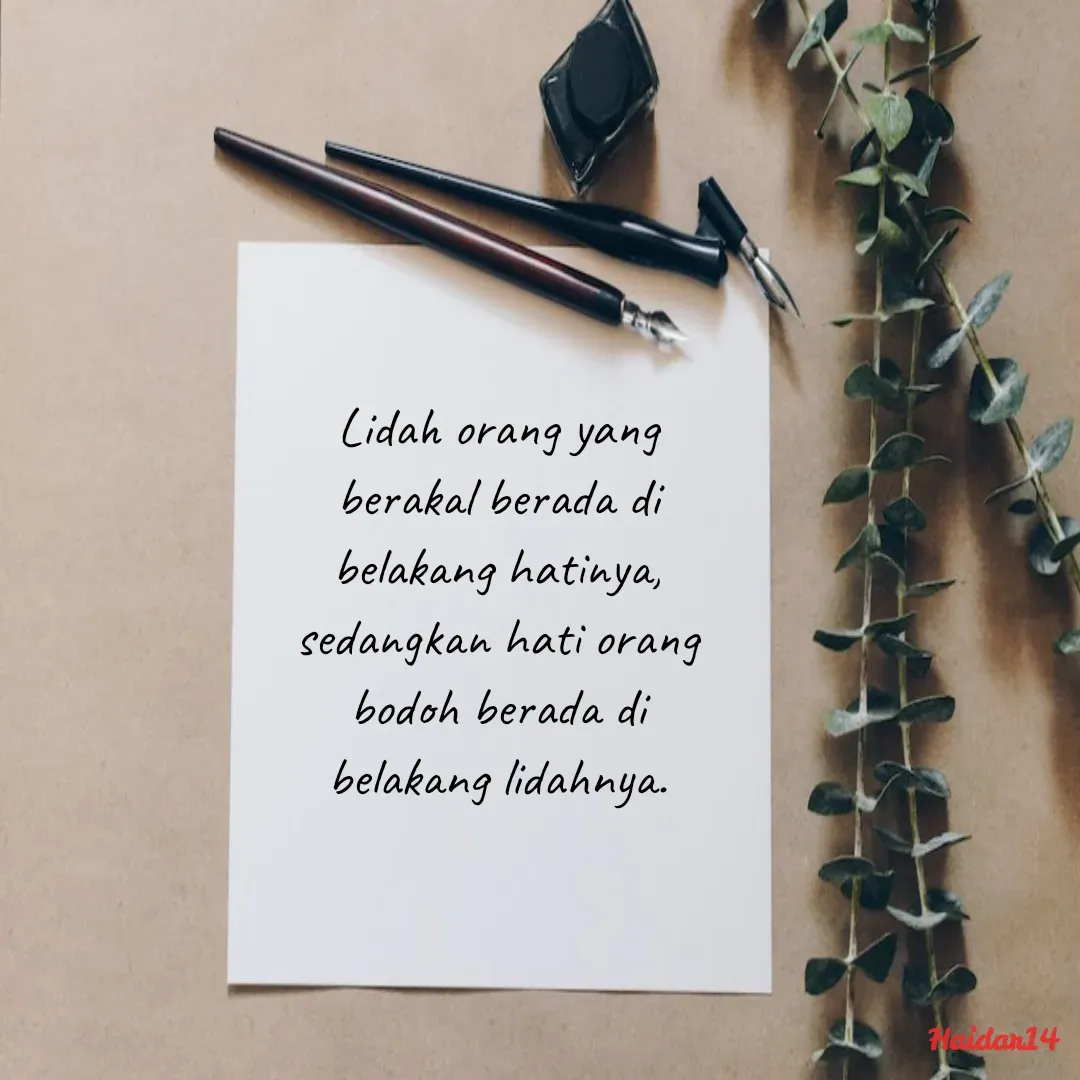 Lidah orang yang
berakal berada di
belakang hatinya,
sedangkan hati orang
bodoh berada di
belakang lidahnya.
Haidar14